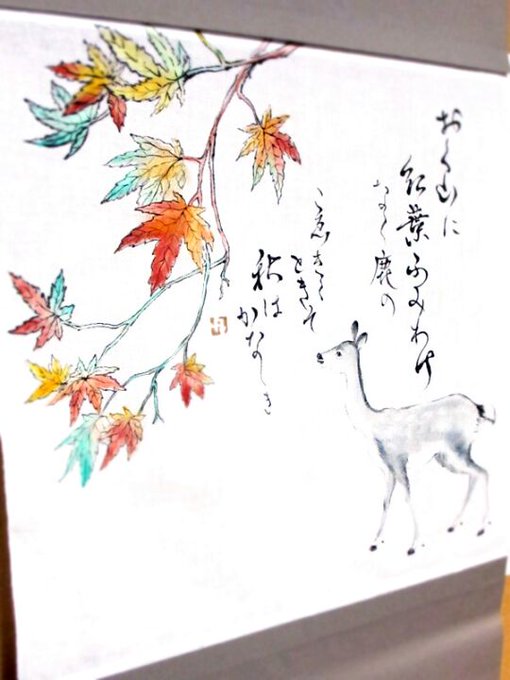 おく山に
紅葉ふみわけ
なく鹿の
こゑきく
ときそ
秋は
かなしき